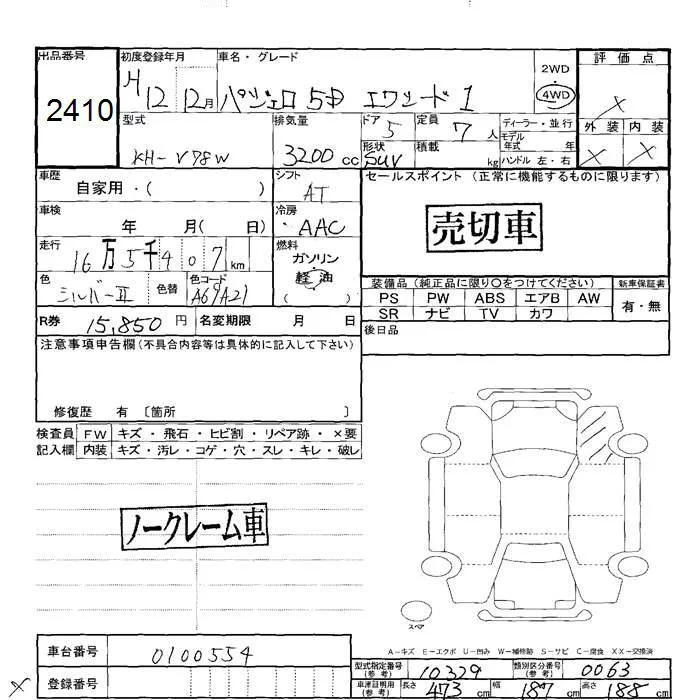 出品番号
2410
初度登録年月
H 12 12月
車名・グレード
パジェロ 5D エクシード 1
2WD
4WD
評価点
×
外装 内装
× ×
型式
KH-V78W
排気量
3200 cc
ドア
5
形状
SUV
定員
7 人
積載
kg
ディーラー・並行
モデル
年式 年
ハンドル 左・右
車歴
自家用・( )
シフト
AT
セールスポイント (正常に機能するものに限ります)
売切車
車検
年 月( 日)
冷房
AAC
走行
16万5千407km
燃料
ガソリン
軽油
( )
色
シルバーII
色替
色コード
A69/A21
装備品 (純正品に限り○をつけてください)
PS PW ABS エアB AW
SR ナビ TV カワ
新車保証書
有・無
R券 15,850 円
名変期限 月 日
後日品
注意事項申告欄 (不具合内容等は具体的に記入して下さい)
修復歴 有 〔箇所 〕
検査員
記入欄
FW キズ・飛石・ヒビ割・リペア跡・×要
内装 キズ・汚レ・コゲ・穴・スレ・キレ・破レ
ノークレーム車
スペア
A-キズ E-エクボ U-凹み W-補修跡 S-サビ C-腐食 XX-交換済
車台番号 0100554
登録番号
×
型式指定番号
(参考)
10329
類別区分番号
(参考)
0063
車庫証明用
(参考)
長さ 473 cm 幅 187 cm 高さ 188 cm